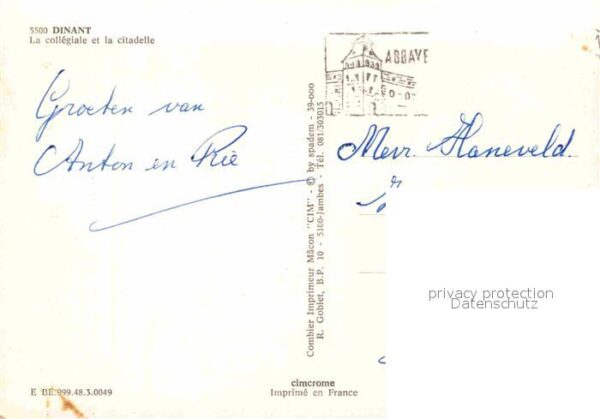 5500 DINANT
La collégiale et la citadelle
ABBAYE
Groeten van
Anton en Rie
Mevr. Haneveld.
Combier Imprimeur Mâcon "CIM" - © by spadem - 39-000
R. Gobiet, B.P. 10 - 5100-Jambes - Tél. 081/303015
privacy protection
Datenschutz
cimcrome
Imprimé en France
E BE 999.48.3.0049